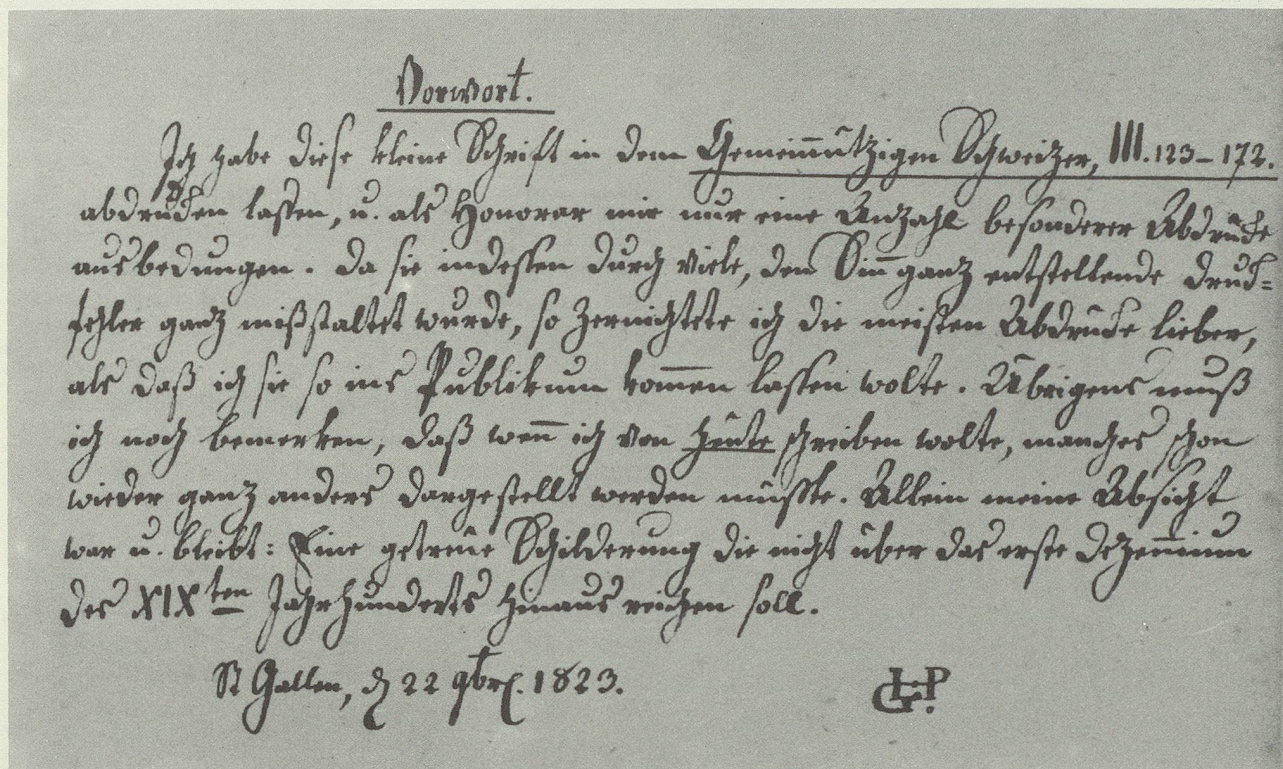 Vorwort.
Ich habe diese kleine Schrift in dem Gemein̅ützigen Schweitzer, III. 123–172.
abdrucken lassen, u. als Honorar mir nur eine Anzahl besonderer Abdrücke
ausbedungen. Da sie indessen durch viele, den Sin̅ ganz entstellende Druck=
fehler ganz mißstaltet wurde, so zernichtete ich die meisten Abdrücke lieber,
als daß ich sie so ins Publikum kom̅en lassen wolte. Übrigens muß
ich noch bemerken, daß wen̅ ich von heute schreiben wolte, manches schon
wieder ganz anders dargestellt werden müsste. Allein meine Absicht
war u. bleibt: Eine getreue Schilderung die nicht über das erste Dezen̅ium
des XIXten Jahrhunderts hinaus reichen soll.
St Gallen, d 22 9br. 1823.